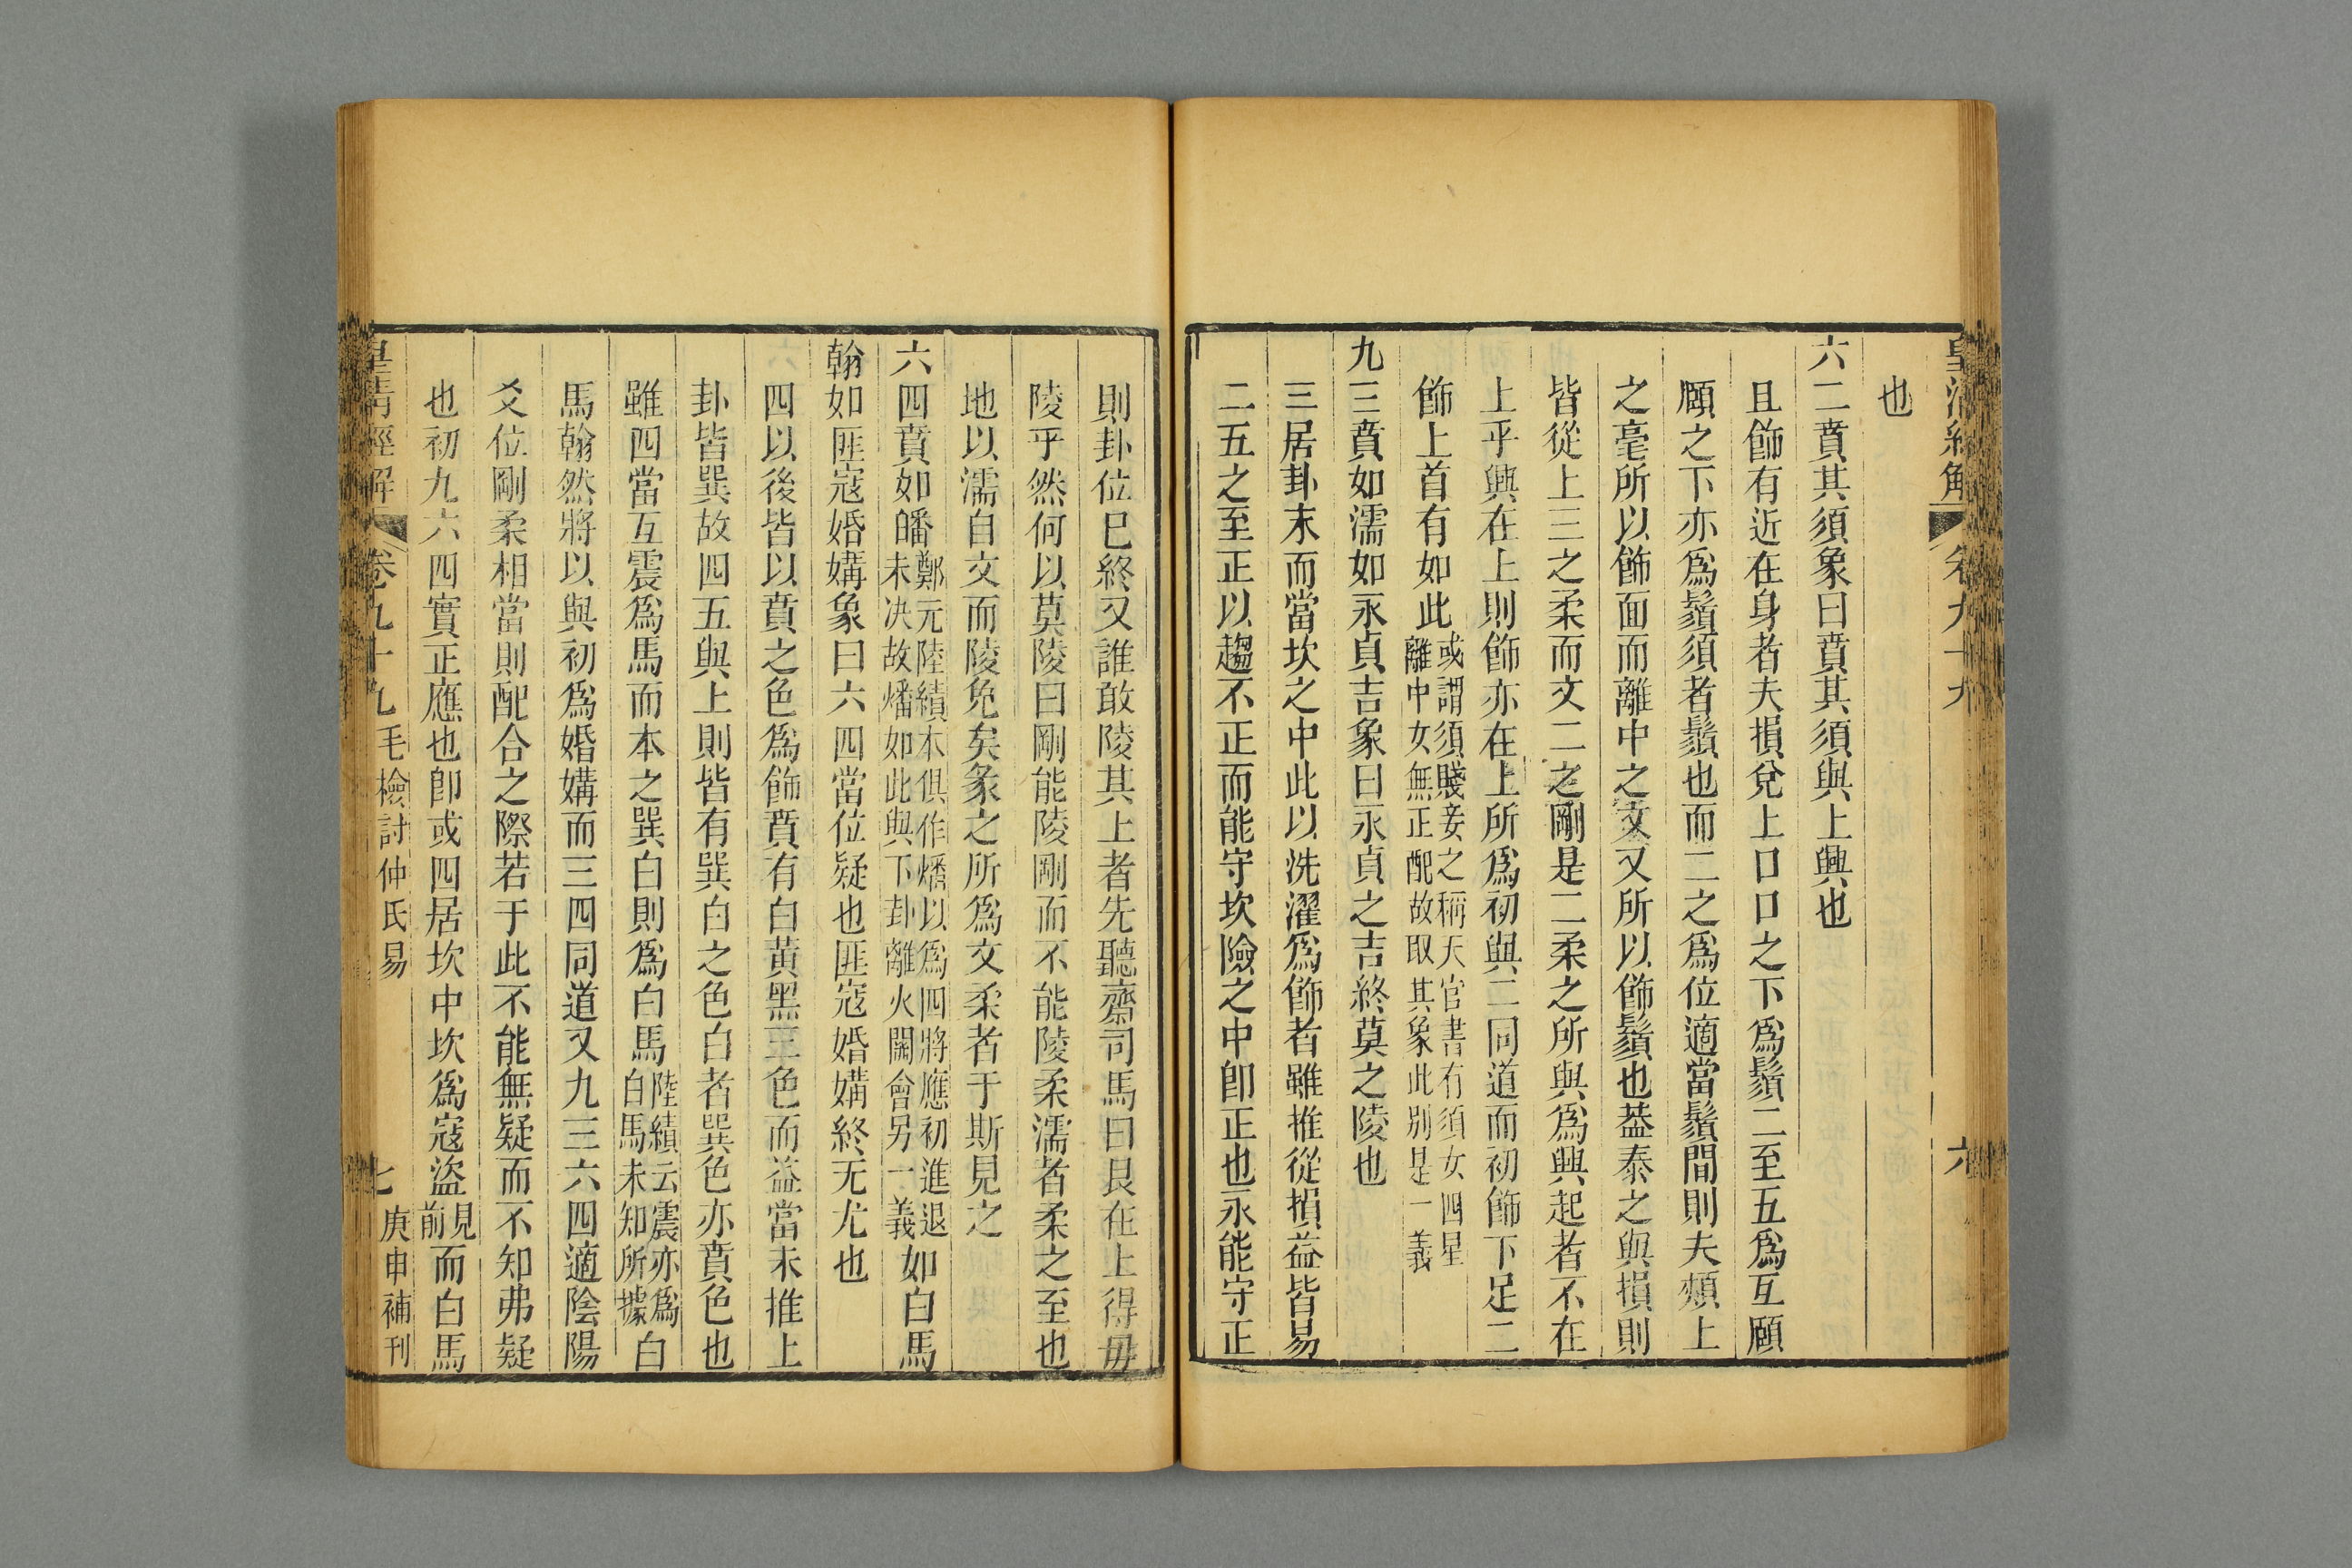 皇清經解 卷九十九 六
也
六二賁其須象曰賁其須與上興也
且飾有近在身者夫損兌上口口之下爲鬚二至五爲互頤
頤之下亦爲鬚須者鬚也而二之爲位適當鬚間則夫頰上
之毫所以飾面而離中之文又所以飾鬚也蓋泰之與損則
皆從上三之柔而文二之剛是二柔之所與爲興起者不在
上乎興在上則飾亦在上所爲初與二同道而初飾下足二
飾上首有如此或謂須賤妾之稱天官書有須女四星離中女無正配故取其象此別是一義
九三賁如濡如永貞吉象曰永貞之吉終莫之陵也
三居卦末而當坎之中此以洗濯爲飾者雖推從損益皆易
二五之至正以趨不正而能守坎險之中卽正也永能守正
則卦位已終又誰敢陵其上者先聽齋司馬曰艮在上得毋
陵乎然何以莫陵曰剛能陵剛而不能陵柔濡者柔之至也
地以濡自文而陵免矣彖之所爲文柔者于斯見之
六四賁如皤鄭元陸績本俱作燔以爲四將應初進退未決故燔如此與下卦離火關會另一義如白馬
翰如匪寇婚媾象曰六四當位疑也匪寇婚媾終无尤也
四以後皆以賁之色爲飾賁有白黃黑三色而益當未推上
卦皆巽故四五與上則皆有巽白之色白者巽色亦賁色也
雖四當互震爲馬而本之巽白則爲白馬陸績云震亦爲白馬未知所據白
馬翰然將以與初爲婚媾而三四同道又九三六四適陰陽
爻位剛柔相當則配合之際若于此不能無疑而不知弗疑
也初九六四實正應也卽或四居坎中坎爲寇盜見前而白馬
皇清經解 卷九十九 毛檢討仲氏易 七 庚申補刊